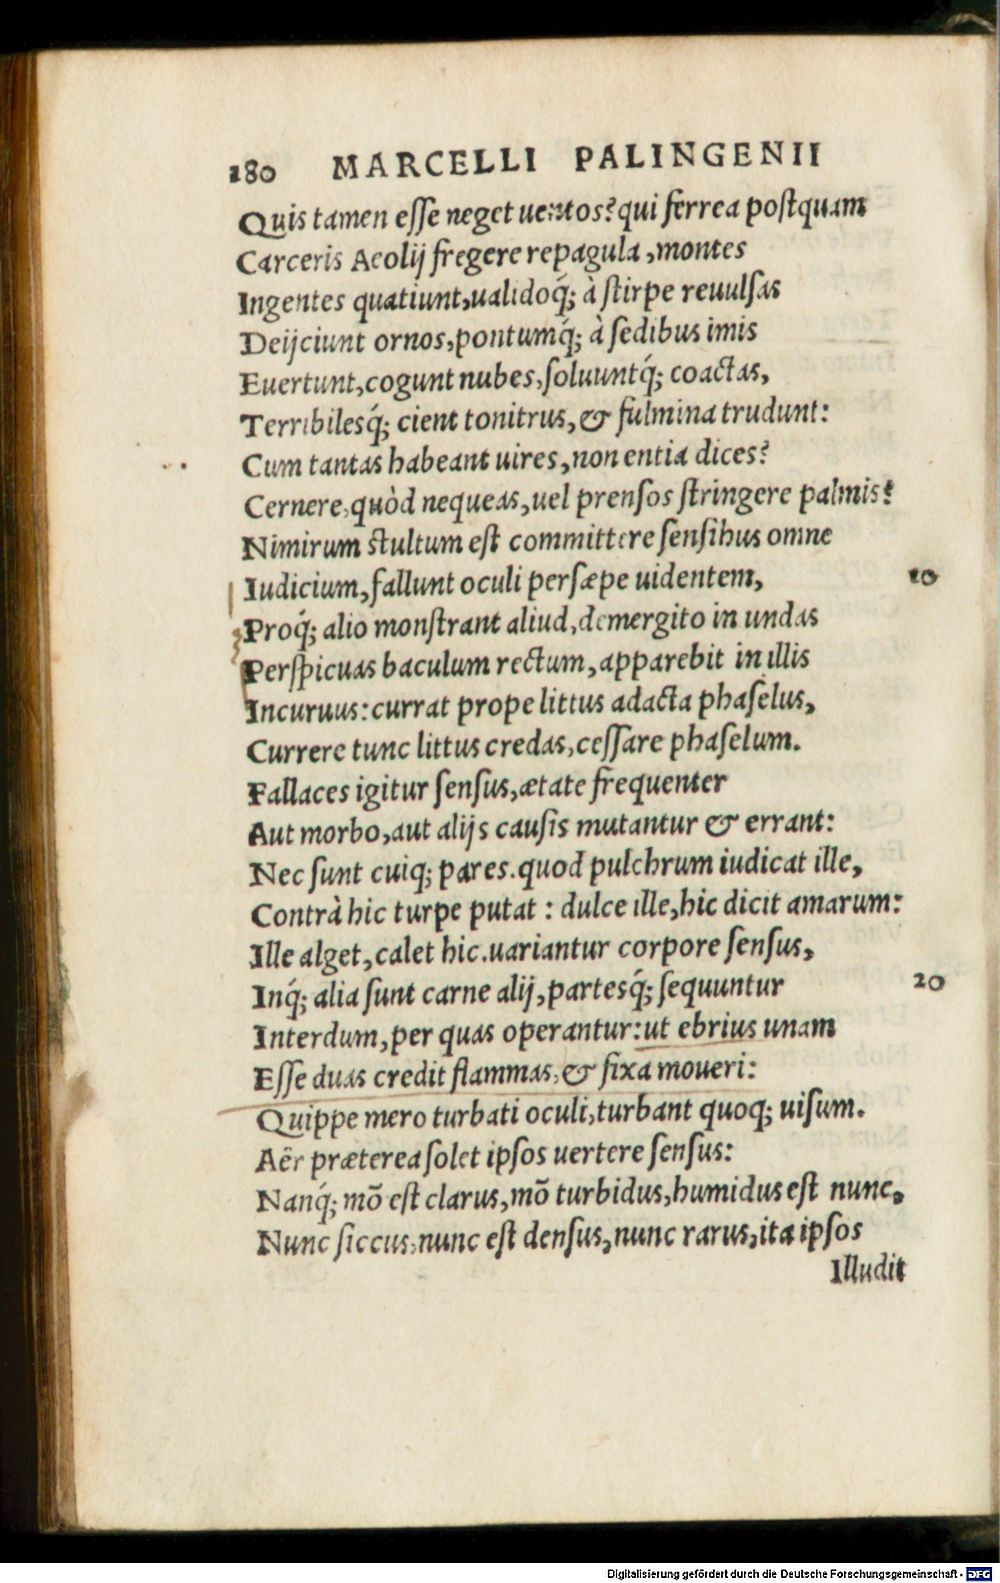 180 MARCELLI PALINGENII
Quis tamen eſſe neget uentos? qui ferrea poſtquam
Carceris Aeolij fregere repagula, montes
Ingentes quatiunt, ualidoq́; à ſtirpe reuulſas
Deijciunt ornos, pontumq́; à ſedibus imis
Euertunt, cogunt nubes, ſoluuntq́; coactas,
Terribilesq́; cient tonitrus, & fulmina trudunt:
Cum tantas habeant uires, non entia dices?
Cernere, quòd nequeas, uel prenſos ſtringere palmis?
Nimirum ſtultum eſt committere ſenſibus omne
Iudicium, fallunt oculi perſæpe uidentem, 10
Proq́; alio monſtrant aliud, demergito in undas
Perſpicuas baculum rectum, apparebit in illis
Incuruus: currat prope littus adacta phaſelus,
Currere tunc littus credas, ceſſare phaſelum.
Fallaces igitur ſenſus, ætate frequenter
Aut morbo, aut alijs cauſis mutantur & errant:
Nec ſunt cuiq; pares. quod pulchrum iudicat ille,
Contrà hic turpe putat : dulce ille, hic dicit amarum:
Ille alget, calet hic. uariantur corpore ſenſus,
Inq́; alia ſunt carne alij, partesq́; ſequuntur 20
Interdum, per quas operantur: ut ebrius unam
Eſſe duas credit flammas, & fixa moueri:
Quippe mero turbati oculi, turbant quoq; uiſum.
Aër præterea ſolet ipſos uertere ſenſus:
Nanq́; mō eſt clarus, mō turbidus, humidus eſt nunc,
Nunc ſiccus, nunc eſt denſus, nunc rarus, ita ipſos
Illudit
Digitalisierung gefördert durch die Deutsche Forschungsgemeinschaft - DFG